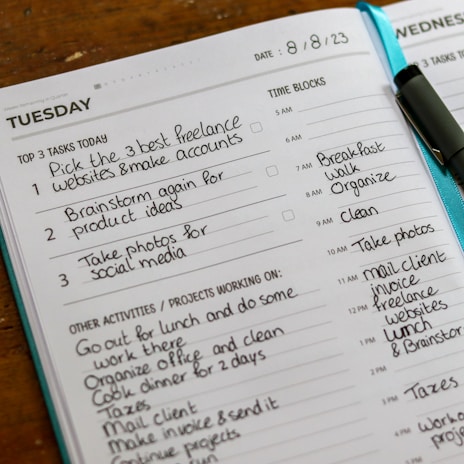 TUESDAY
DATE : 8/8/23
TOP 3 TASKS TODAY
1 Pick the 3 best freelance
websites & make accounts
2 Brainstorm again for
product ideas
3 Take photos for
social media
OTHER ACTIVITIES / PROJECTS WORKING ON:
Go out for lunch and do some
work there
Organize office and clean
Cook dinner for 2 days
Taxes
Mail client
Make invoice & send it
Continue projects
run
TIME BLOCKS
5 AM
6 AM
7 AM Breakfast
walk
8 AM Organize
9 AM Clean
10 AM Take photos
11 AM mail client
invoice
12 PM freelance
websites
1 PM Lunch
& Brainstor
2 PM
3 PM Taxes
4 PM Work
proje
5 PM
WEDNES
TOP 3 TASKS TO